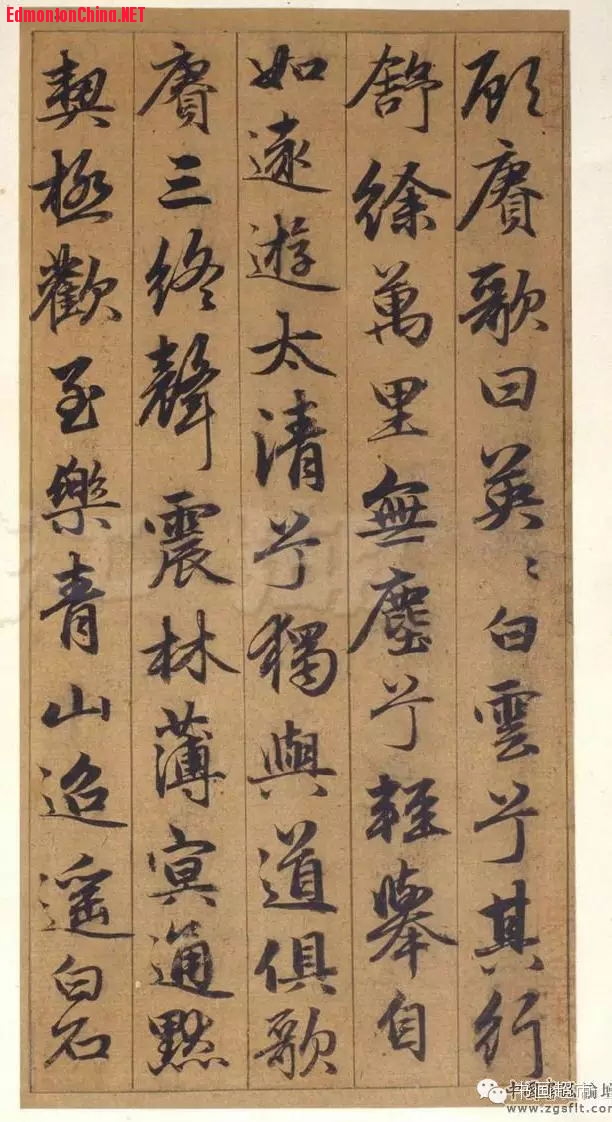 EdmontonChina.NET
顧賡歌曰英〻白雲兮其行
舒徐萬里無塵兮輕舉自
如遠遊太清兮獨與道俱歌
賡三終聲震林薄冥通默
契極歡至樂青山迢遥白石
www.zgsflt.com